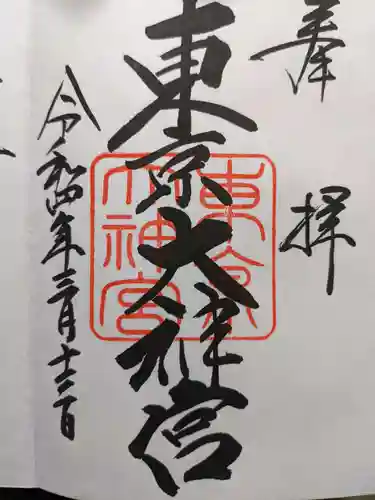 奉拝
東京大神宮
東京大神宮
令和四年三月十三日